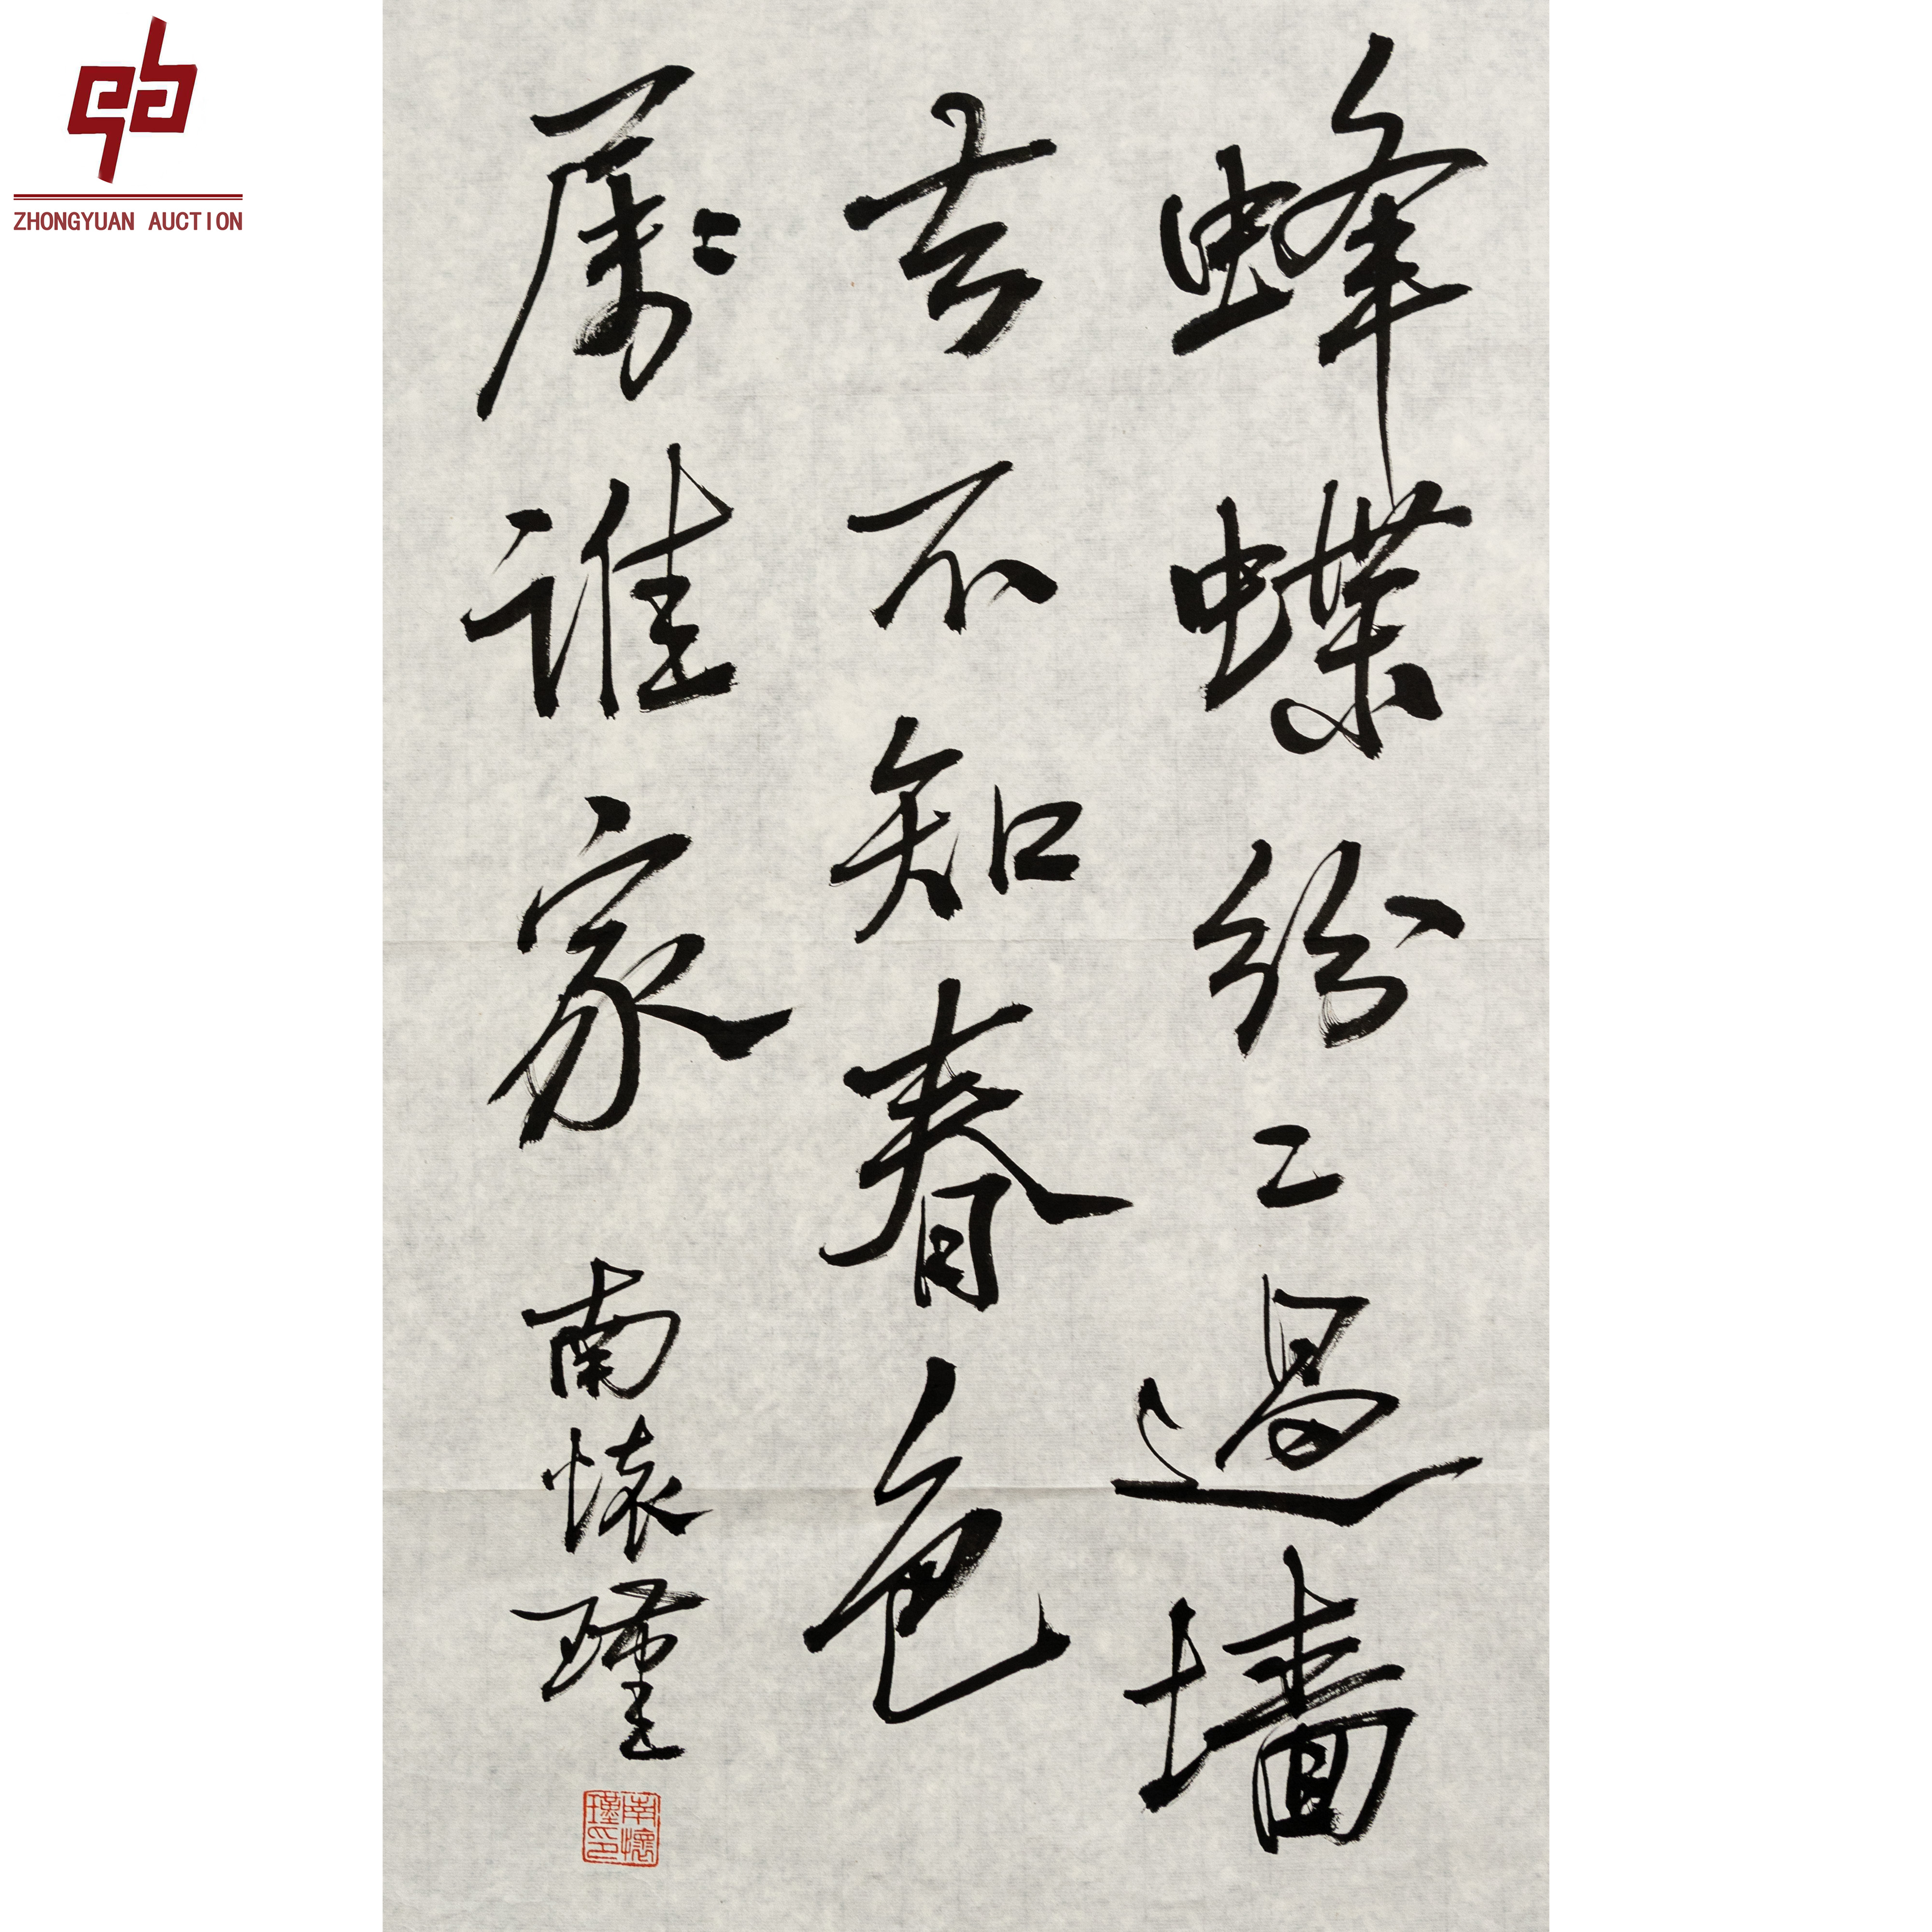 ZHONGYUAN AUCTION
蜂蝶纷二過墙
去不知春色
属谁家 南懷瑾
南懷瑾印